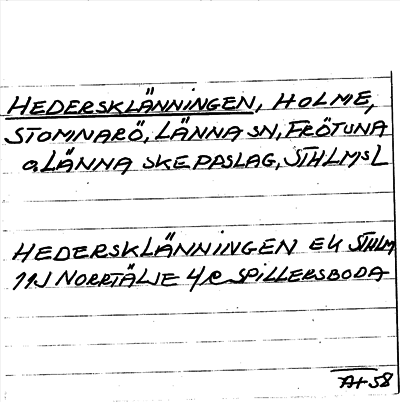 HEDERSKLÄNNINGEN, HOLME,
STOMNARÖ, LÄNNA SN, FRÖTUNA
o. LÄNNA SKEPPSLAG, STHLMSL
HEDERSKLÄNNINGEN EK STHLM
11J NORRTÄLJE 4/c SPILLERSBODA
AH 58